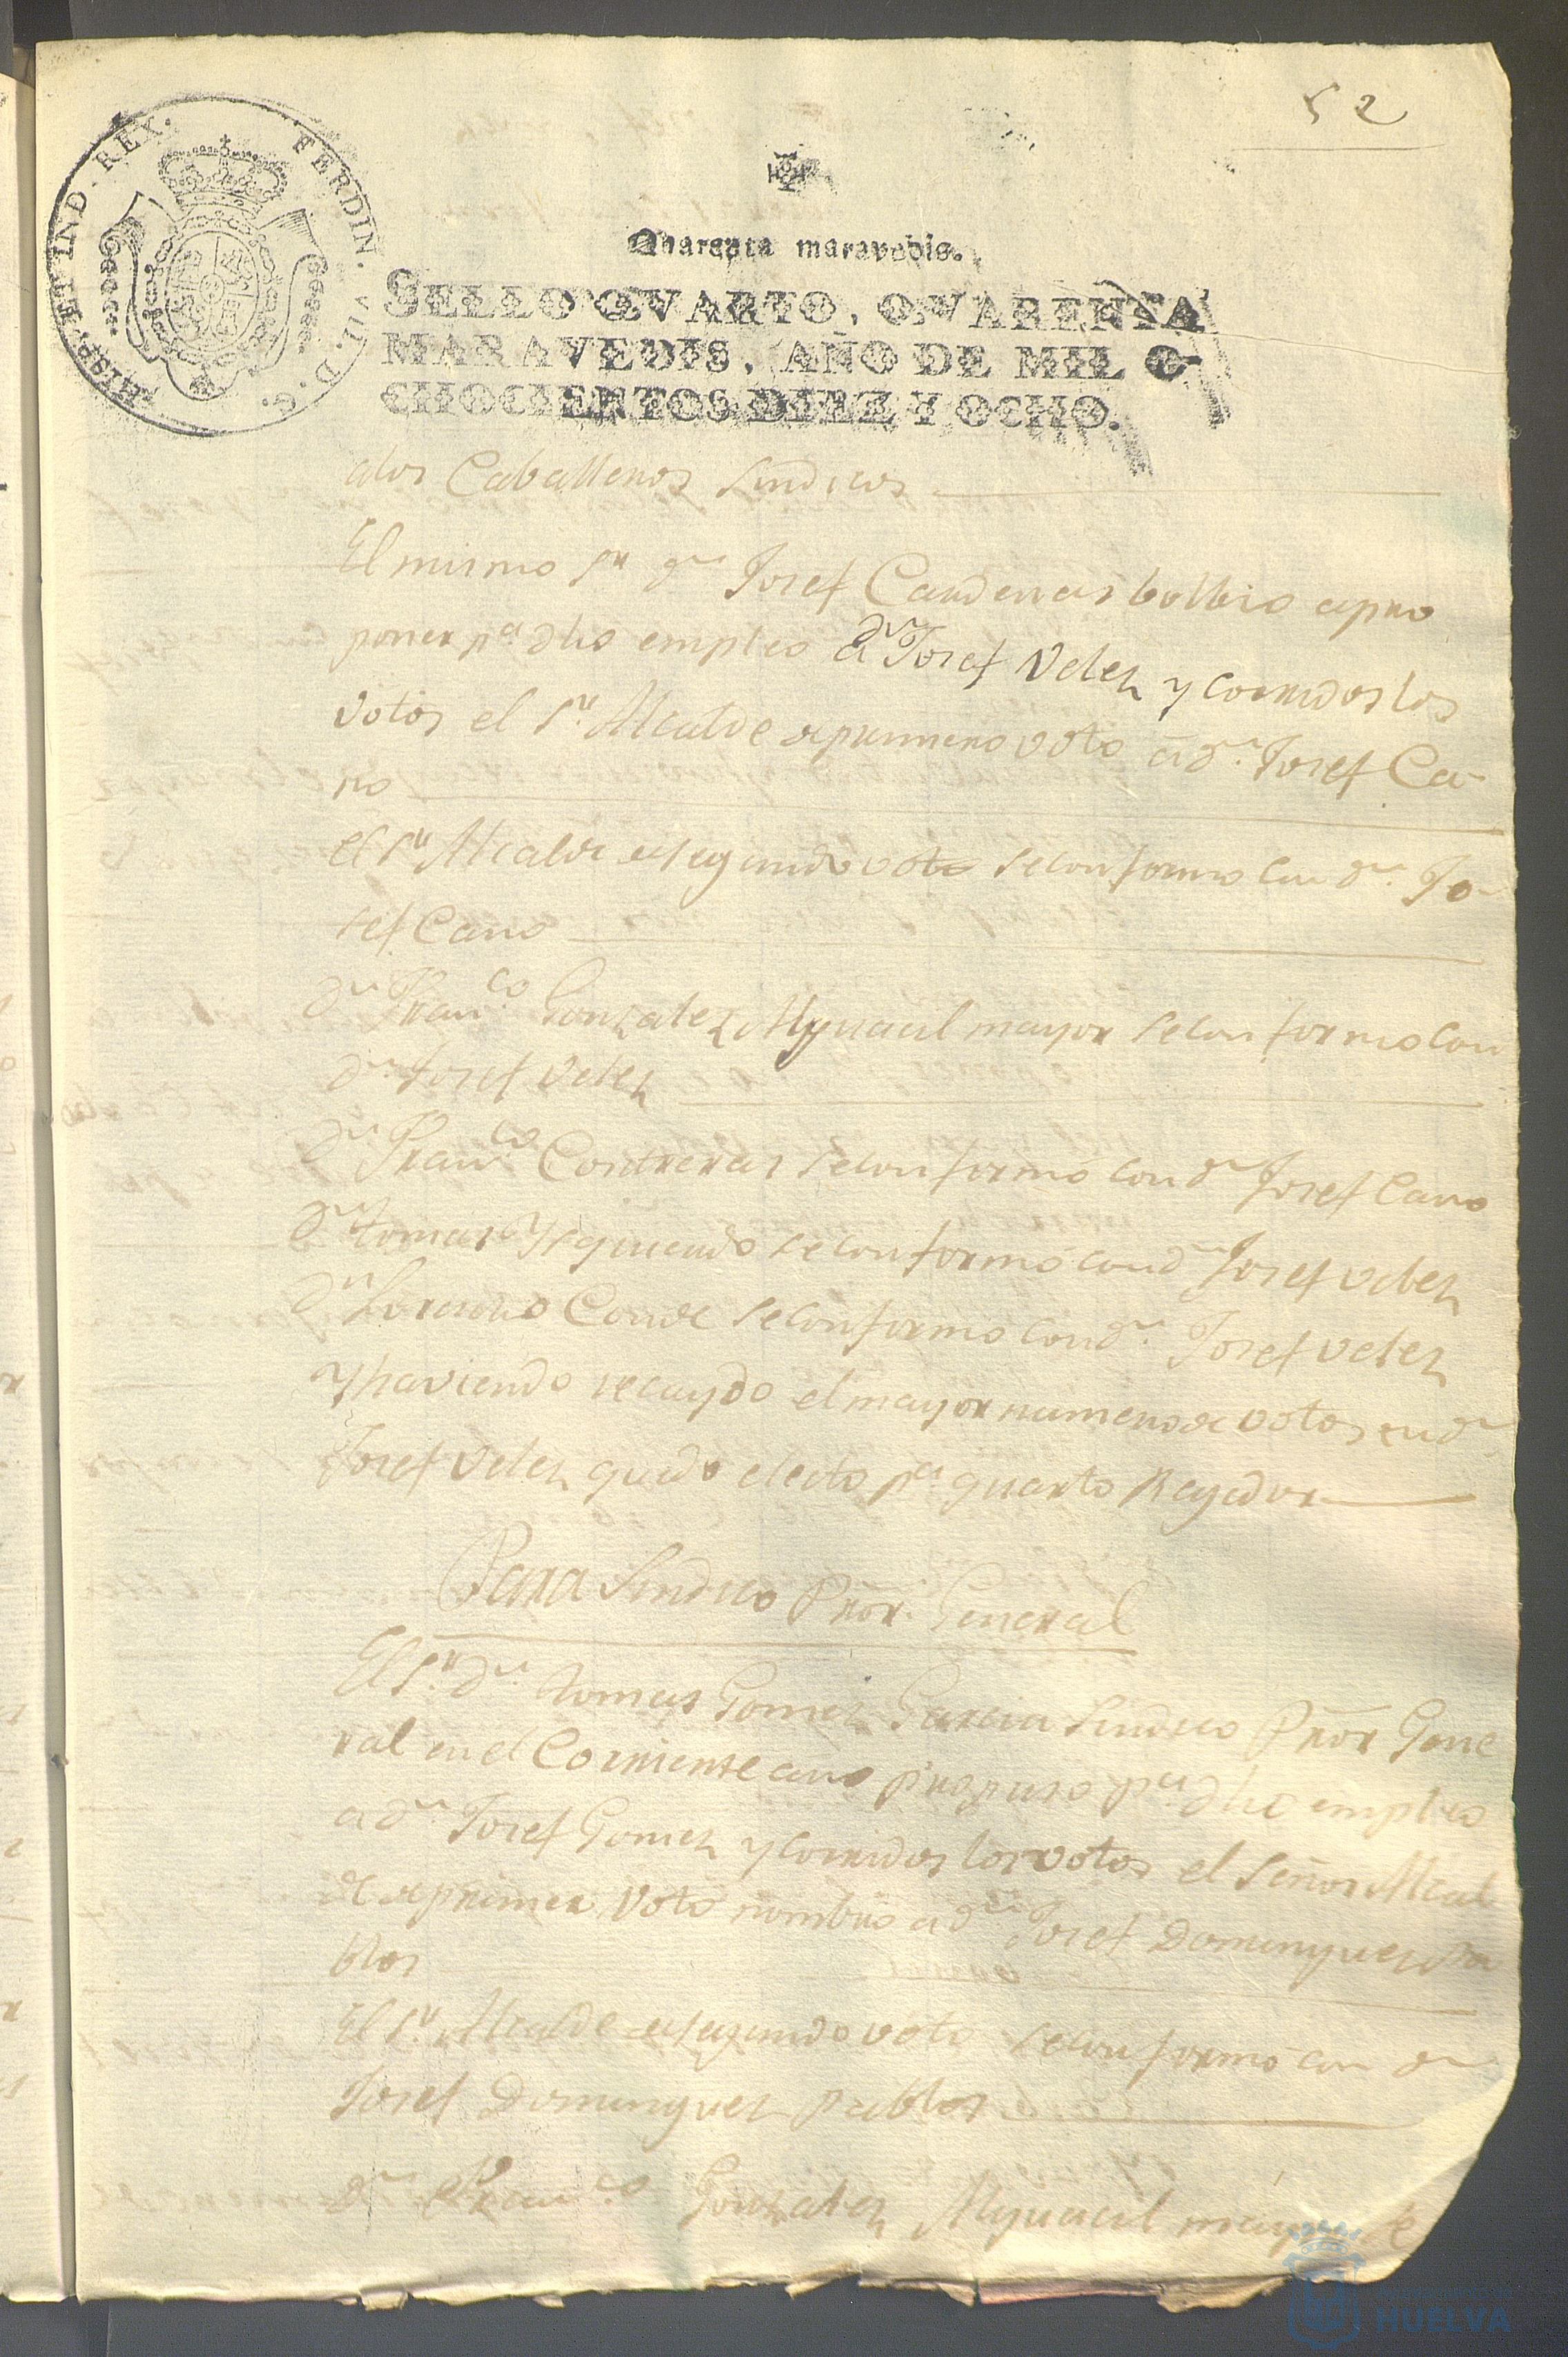 52
HISP. ET IND. REX. FERDIN. VII. D. G.
Quarenta maravedis.
SELLO QVARTO, QVARENTA
MARAVEDIS, AÑO DE MIL O-
CHOCIENTOS DIEZ Y OCHO.
alos Caballeros sindicos
El mismo Sr. Dn. Josef Cardenas bolbio apro
poner pa. dho empleo a Dn. Josef Velez y corridos los
votos el Sr. Alcalde de primero voto a Dn. Josef Ca-
no
el Sr. Alcalde de segundo voto se conformo con Dn. Jo-
sef Cano
Dn. Franco. Gonzalez Alguacil mayor se conformo con
Dn. Josef Velez
Dn. Franco. Contreras se conformó con Dn. Josef Cano
Dn. tomas Ysquierdo se conformó con Dn. Josef Velez
Dn. Lorenzo Conde se conformó con Dn. Josef Velez
y haviendo recaydo el mayor numero de votos en Dn.
Josef Velez quedo electo pa. quarto Regidor
Para Sindico Pror. General
El Sr. Dn. tomas Gomez Garcia Sindico Pror Gene
ral en el Corriente ano propuso pa. dho empleo
a Dn. Josef Gomez y corridos los votos el Señor Alcal
de de primer voto nombro a Dn. Josef Dominguez Pa
blos
El Sr. Alcalde de segundo voto se conformó con Dn
Josef Dominguez pablos
Dn. Franco. Gonzalez Alguacil mayor se
HUELVA